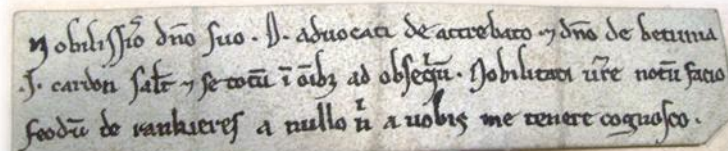 Nobilissĩo dño suo . D . advocati de attrebato ⁊ dño de betunia
.J. cardon salt̃ ⁊ se totũ ĩ oĩbꝫ ad obseqⁱũ . Nobilitati ur̃e notũ facio
feodũ de rankieres a nullo nⁱ a uobis me tenere cognosco .